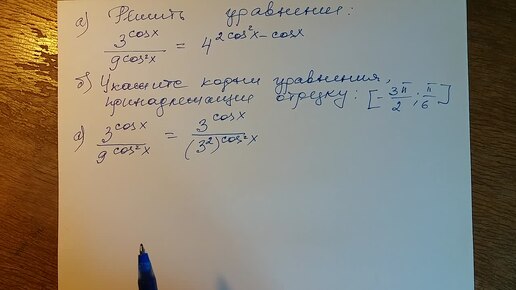 а) Решить уравнение:
3^cosx / 9^cos²x = 4^(2cos²x - cosx)
б) Укажите корни уравнения,
принадлежащие отрезку: [-3π/2; π/6]
а) 3^cosx / 9^cos²x = 3^cosx / (3²)^cos²x